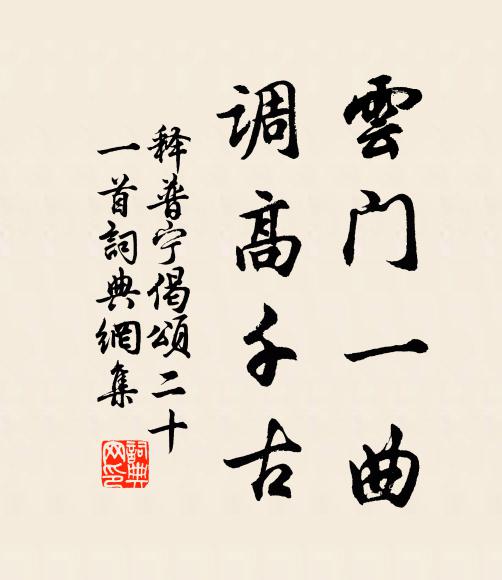 雲门一曲
调高千古
释普宁偈頌二十
一首詞典網集
詞典
网印